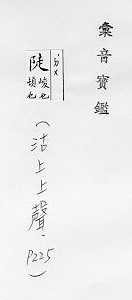 彙音寶鑑
陡 峻也 頓也
(沽上上聲.P225)